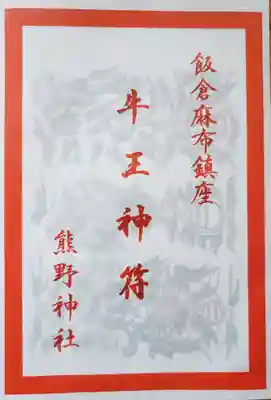 飯倉麻布鎮座
牛王神符
熊野神社